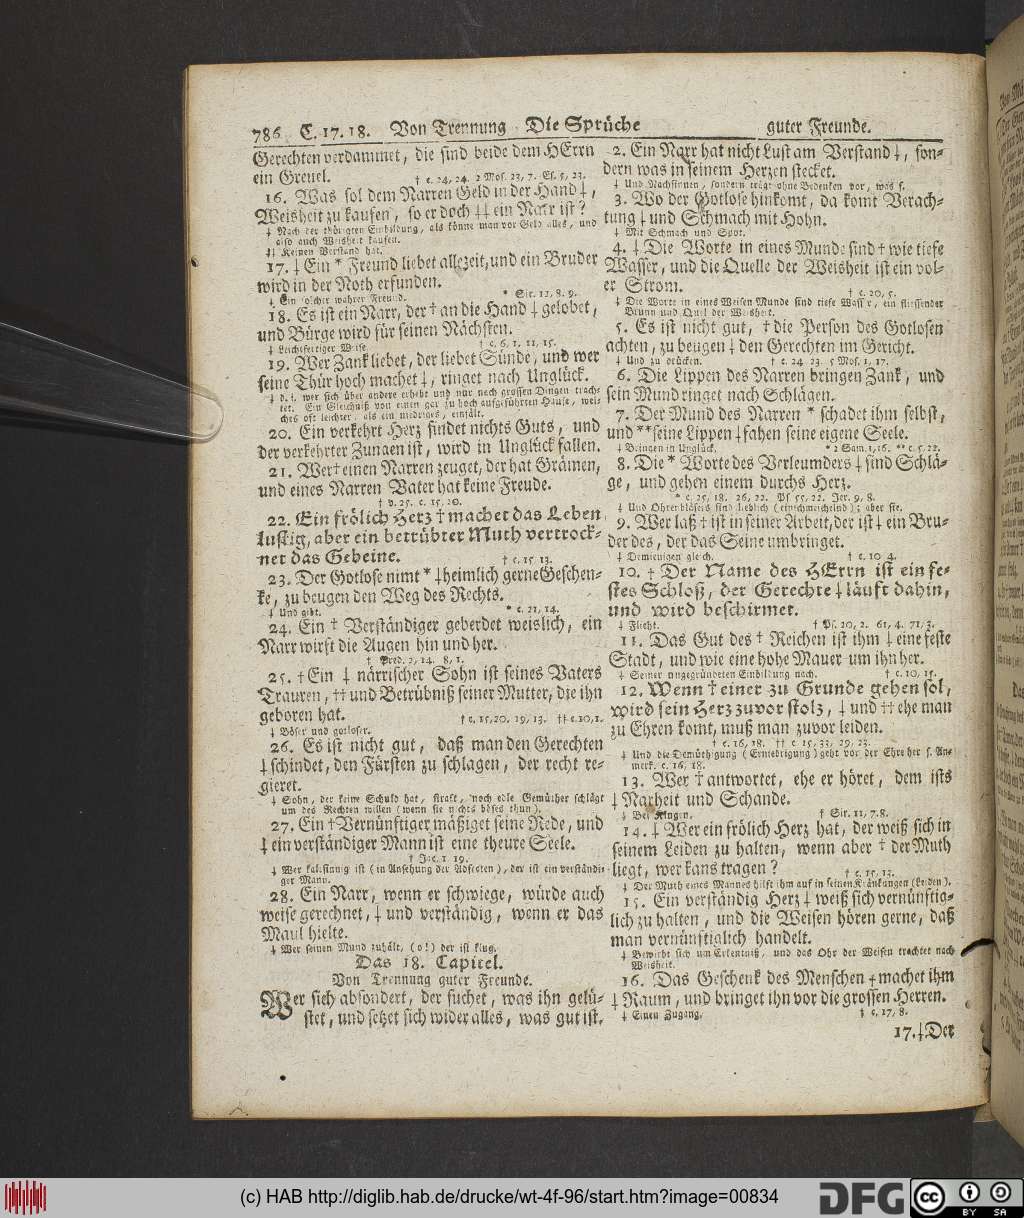 786 C. 17. 18. Von Trennung Die Sprüche guter Freunde.
Gerechten verdammet, die sind beide dem HErrn
ein Greuel. † c. 24, 24. 2 Mos. 23, 7. Es. 5, 23.
16. Was sol dem Narren Geld in der Hand ‡,
Weisheit zu kaufen, so er doch ‡‡ ein Narr ist?
‡ Nach der thörigten Einbildung, als könne man vor Geld alles, und
also auch Weisheit kaufen.
‡‡ Keinen Verstand hat.
17. ‡ Ein * Freund liebet allezeit, und ein Bruder
wird in der Noth erfunden.
‡ Ein solcher wahrer Freund. * Sir. 12, 8. 9.
18. Es ist ein Narr, der † an die Hand ‡ gelobet,
und Bürge wird für seinen Nächsten.
‡ Leichtfertiger Weise. † c. 6, 1. 11, 15.
19. Wer Zank liebet, der liebet Sünde, und wer
seine Thür hoch machet ‡, ringet nach Unglück.
‡ d. i. wer sich über andere erhebt und nur nach grossen Dingen trach-
tet. Ein Gleichniß von einen gar zu hoch aufgeführten Hause, wel-
ches oft leichter, als ein niedriges, einfält.
20. Ein verkehrt Herz findet nichts Guts, und
der verkehrter Zungen ist, wird in Unglück fallen.
21. Wer † einen Narren zeuget, der hat Grämen,
und eines Narren Vater hat keine Freude.
† v. 25. c. 15, 20.
22. Ein frölich Herz † machet das Leben
lustig, aber ein betrübter Muth vertrock-
net das Gebeine. † c. 15, 13.
23. Der Gotlose nimt * ‡ heimlich gerne Geschen-
ke, zu beugen den Weg des Rechts.
‡ Und gibt. * c. 21, 14.
24. Ein † Verständiger geberdet weislich, ein
Narr wirft die Augen hin und her.
† Pred. 2, 14. 8, 1.
25. † Ein ‡ närrischer Sohn ist seines Vaters
Trauren, †† und Betrübniß seiner Mutter, die ihn
geboren hat. † c. 15, 20. 19, 13. †† c. 10, 1.
‡ Böser und gotloser.
26. Es ist nicht gut, daß man den Gerechten
‡ schindet, den Fürsten zu schlagen, der recht re-
gieret.
‡ Sohn, der keine Schuld hat, straft, noch edle Gemüther schlägt
um des Rechten willen (wenn sie nichts böses thun).
27. Ein † Vernünftiger mäßiget seine Rede, und
‡ ein verständiger Mann ist eine theure Seele.
† Jac. 1, 19.
‡ Wer kaltsinnig ist (in Ansehung der Adfecten), der ist ein verständi-
ger Mann.
28. Ein Narr, wenn er schwiege, würde auch
weise gerechnet, ‡ und verständig, wenn er das
Maul hielte.
‡ Wer seinen Mund zuhält, (o!) der ist klug.
Das 18. Capitel.
Von Trennung guter Freunde.
Wer sich absondert, der suchet, was ihn gelü-
stet, und setzet sich wider alles, was gut ist.
2. Ein Narr hat nicht Lust am Verstand ‡, son-
dern was in seinem Herzen stecket.
‡ Und Nachsinnen, sondern trägt ohne Bedenken vor, was s.
3. Wo der Gotlose hinkomt, da komt Verach-
tung ‡ und Schmach mit Hohn.
‡ Mit Schmach und Spot.
4. ‡ Die Worte in eines Munde sind † wie tiefe
Wasser, und die Quelle der Weisheit ist ein vol-
er Strom. † c. 20, 5.
‡ Die Worte in eines Weisen Munde sind tiefe Wasser, ein fliessender
Brunn und Quel der Weisheit.
5. Es ist nicht gut, † die Person des Gotlosen
achten, zu beugen ‡ den Gerechten im Gericht.
‡ Und zu drücken. † c. 24, 23. 5 Mos. 1, 17.
6. Die Lippen des Narren bringen Zank, und
sein Mund ringet nach Schlägen.
7. Der Mund des Narren * schadet ihm selbst,
und ** seine Lippen ‡ fahen seine eigene Seele.
‡ Bringen in Unglück. * 2 Sam. 1, 16. ** c. 5, 22.
8. Die * Worte des Verleumders ‡ sind Schlä-
ge, und gehen einem durchs Herz.
* c. 25, 18. 26, 22. Ps. 55, 22. Jer. 9, 8.
‡ Und Ohrenbläsers sind lieblich (einschmeichelnd); aber sie.
9. Wer laß † ist in seiner Arbeit, der ist ‡ ein Bru-
der des, der das Seine umbringet.
‡ Demjenigen gleich. † c. 10, 4.
10. † Der Name des HErrn ist ein fe-
stes Schloß, der Gerechte ‡ läuft dahin,
und wird beschirmet.
‡ Flieht. † Ps. 20, 2. 61, 4. 71, 3.
11. Das Gut des † Reichen ist ihm ‡ eine feste
Stadt, und wie eine hohe Mauer um ihn her.
‡ Seiner ungegründeten Einbildung nach. † c. 10, 15.
12. Wenn † einer zu Grunde gehen sol,
wird sein Herz zuvor stolz, ‡ und †† ehe man
zu Ehren komt, muß man zuvor leiden.
† c. 16, 18. †† c. 15, 33. 29, 23.
‡ Und die Demüthigung (Erniedrigung) geht vor der Ehre her s. An-
merk. c. 16, 18.
13. Wer † antwortet, ehe er höret, dem ists
‡ Narheit und Schande.
‡ Bei Klugen. † Sir. 11, 7. 8.
14. ‡ Wer ein frölich Herz hat, der weiß sich in
seinem Leiden zu halten, wenn aber † der Muth
liegt, wer kans tragen? † c. 15, 13.
‡ Der Muth eines Mannes hilft ihm auf in seinen Kränkungen (Leiden).
15. Ein verständig Herz ‡ weiß sich vernünftig-
lich zu halten, und die Weisen hören gerne, daß
man vernünftiglich handelt.
‡ Bewirbt sich um Erkentniß, und das Ohr der Weisen trachtet nach
Weisheit.
16. Das Geschenk des Menschen † machet ihm
‡ Raum, und bringet ihn vor die grossen Herren.
‡ Einen Zugang. † c. 17, 8.
17. ‡ Der
(c) HAB http://diglib.hab.de/drucke/wt-4f-96/start.htm?image=00834
DFG
cc
BY SA